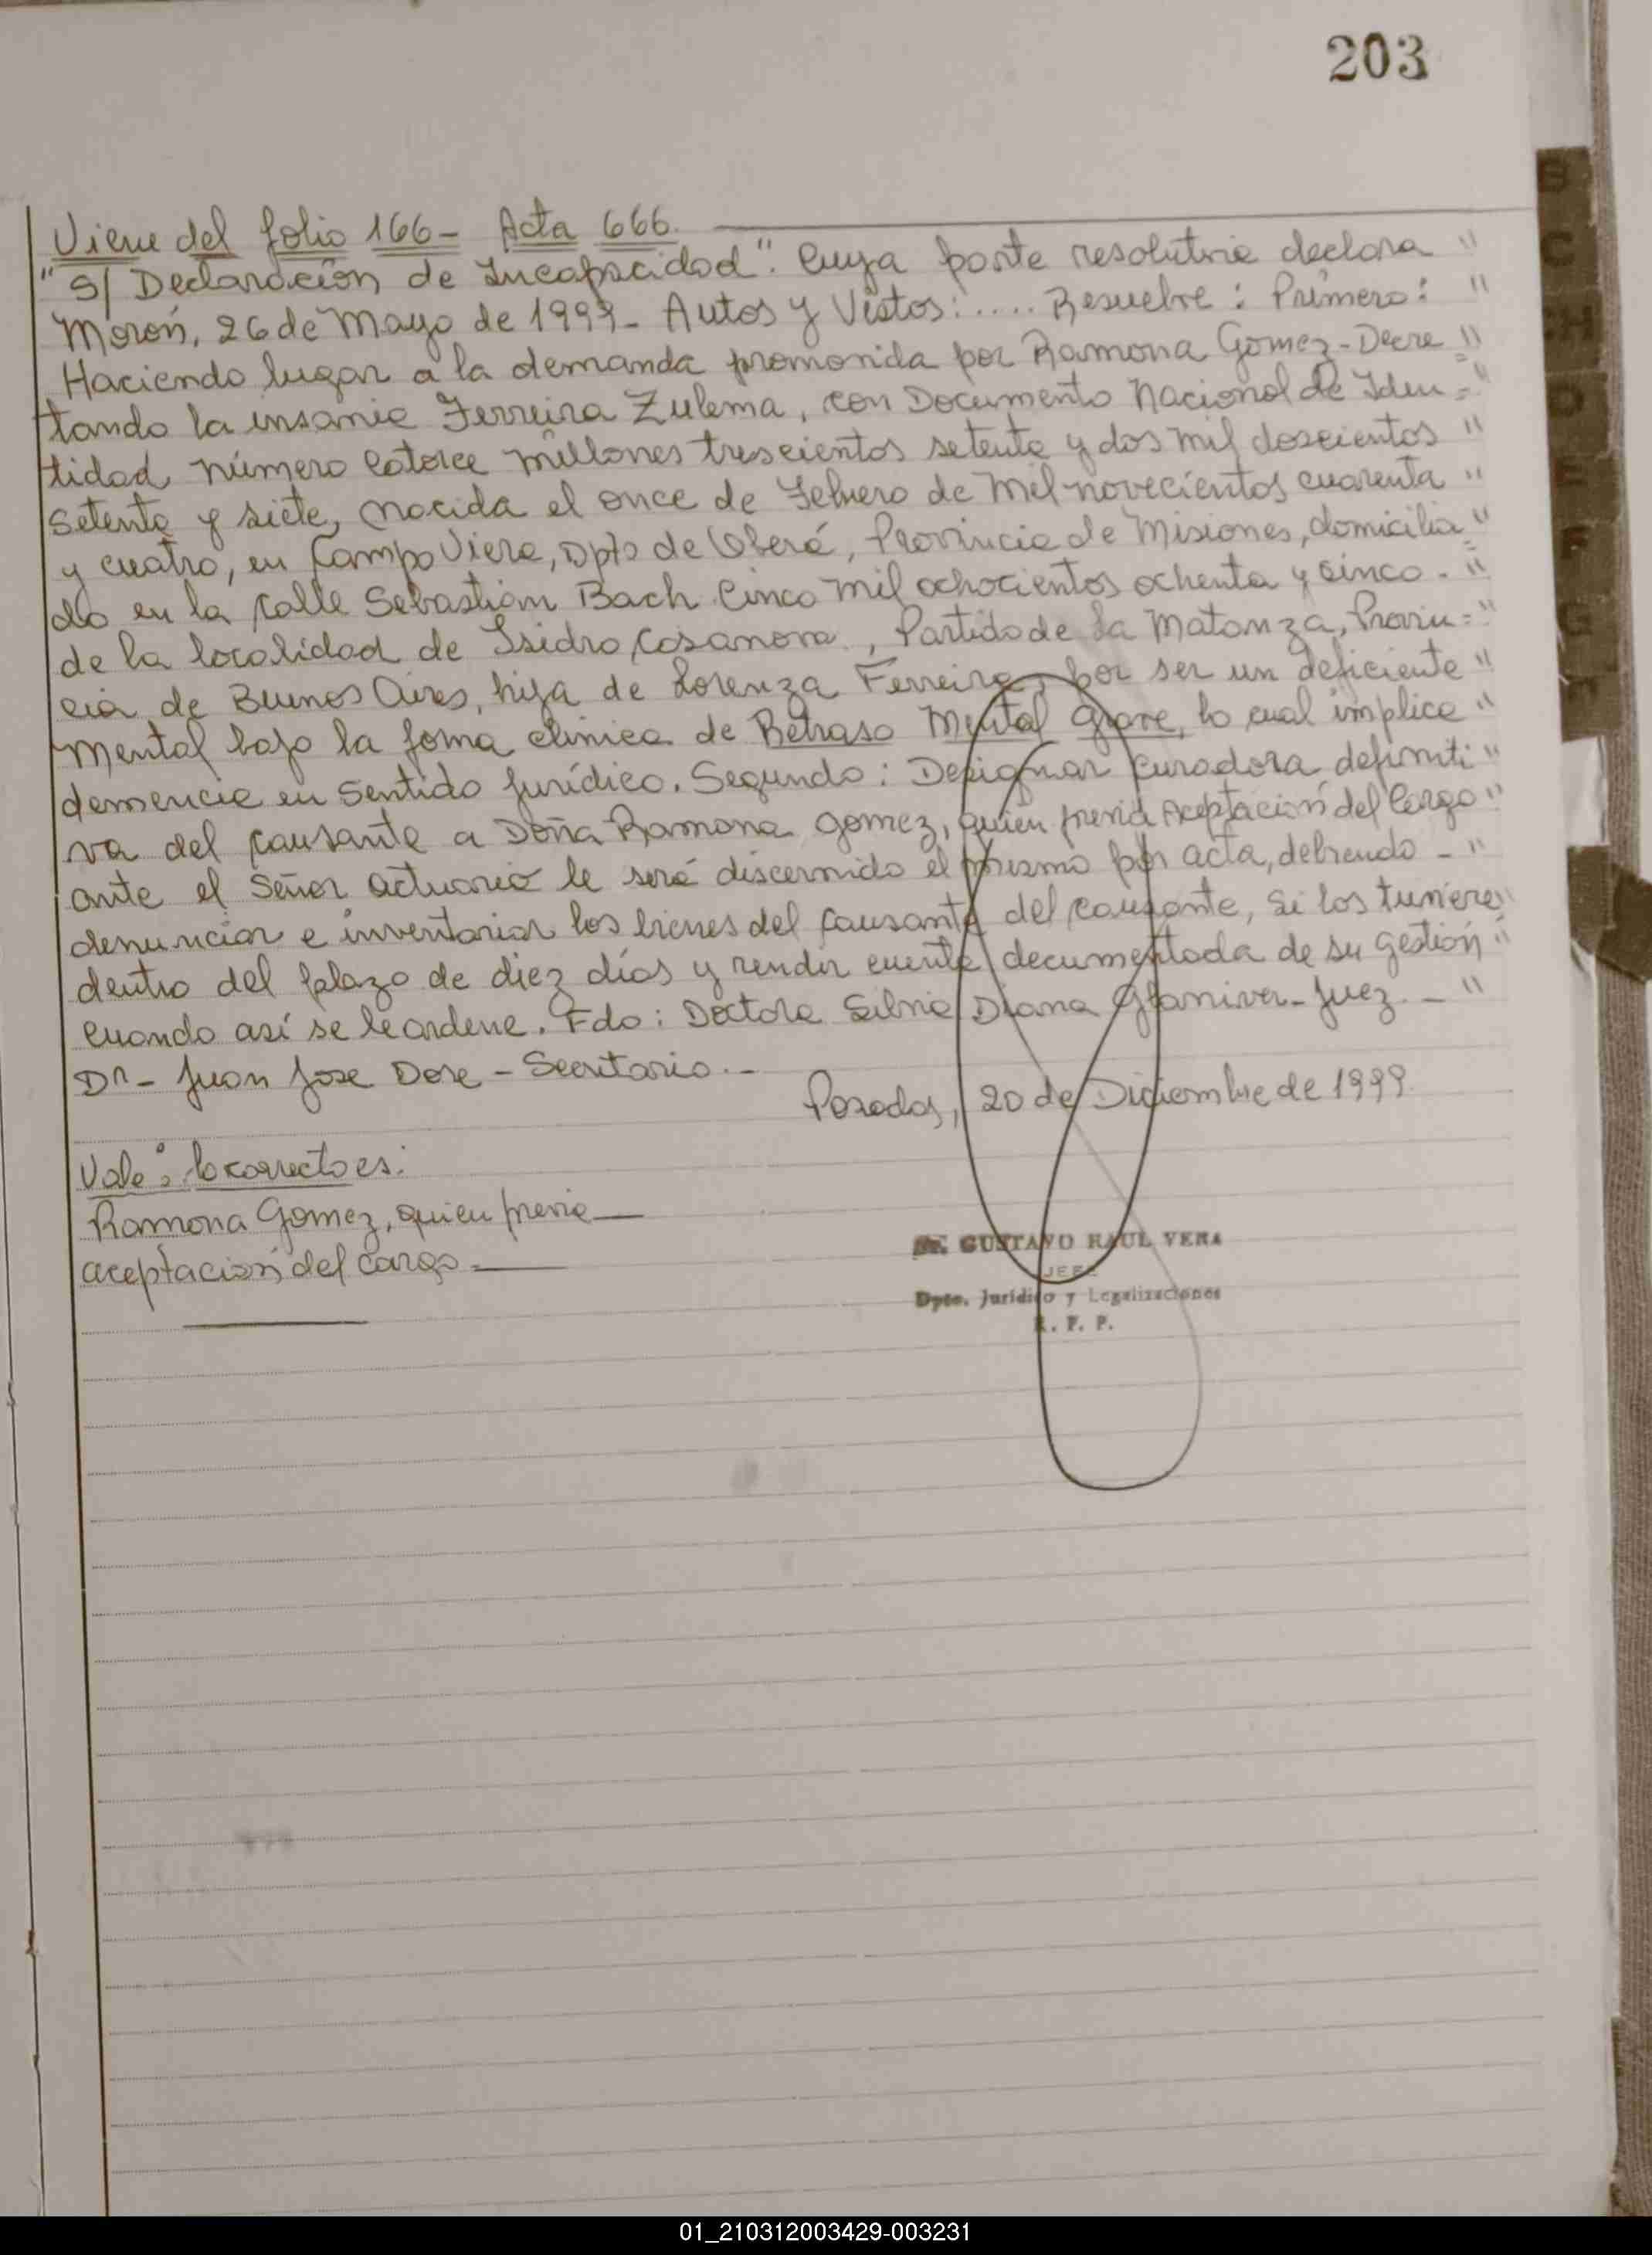 203
Viene del folio 166- Acta 666.
"S/ Declaración de Incapacidad". Cuya parte resolutiva declara "
Morón, 26 de Mayo de 1999- Autos y Vistos:..... Resuelve: Primero: "
Haciendo lugar a la demanda promovida por Ramona Gomez-Decre "
tando la insania Ferreira Zulema, con Documento Nacional de Iden="
tidad número Catorce millones trescientos setenta y dos mil doscientos "
Setenta y siete, nacida el once de Febrero de mil novecientos cuarenta "
y cuatro, en Campo Viera, Dpto de Oberá, Provincia de Misiones, domicilia="
do en la calle Sebastian Bach Cinco mil ochocientos ochenta y cinco. = "
de la localidad de Isidro Casanova, Partido de La Matanza, Provin="
cia de Buenos Aires, hija de Lorenza Ferreira, por ser un deficiente "
mental bajo la forma clínica de Retraso Mental grave, lo cual implica "
demencia en sentido jurídico. Segundo: Designar curadora definiti "
va del causante a Doña Ramona Gomez, quien previa aceptación del Cargo "
ante el Señor actuario le será discernido el mismo por acta, debiendo - "
denunciar e inventariar los bienes del causante del causante, si los tuviere "
dentro del plazo de diez días y rendir cuenta documentada de su gestión "
cuando así se le ordene. Fdo: Doctora Silvia Diana - Juez. - "
Dr- Juan Jose Dore - Secretario.-
Posadas, 20 de Diciembre de 1999
Vale: lo correcto es:
Ramona Gomez, quien previa
aceptación del cargo
Dr. GUSTAVO RAUL VERA
JEFE
Dpto. Jurídico y Legalizaciones
R. P. P.
B
C
H
D
E
F
G
01_210312003429-003231